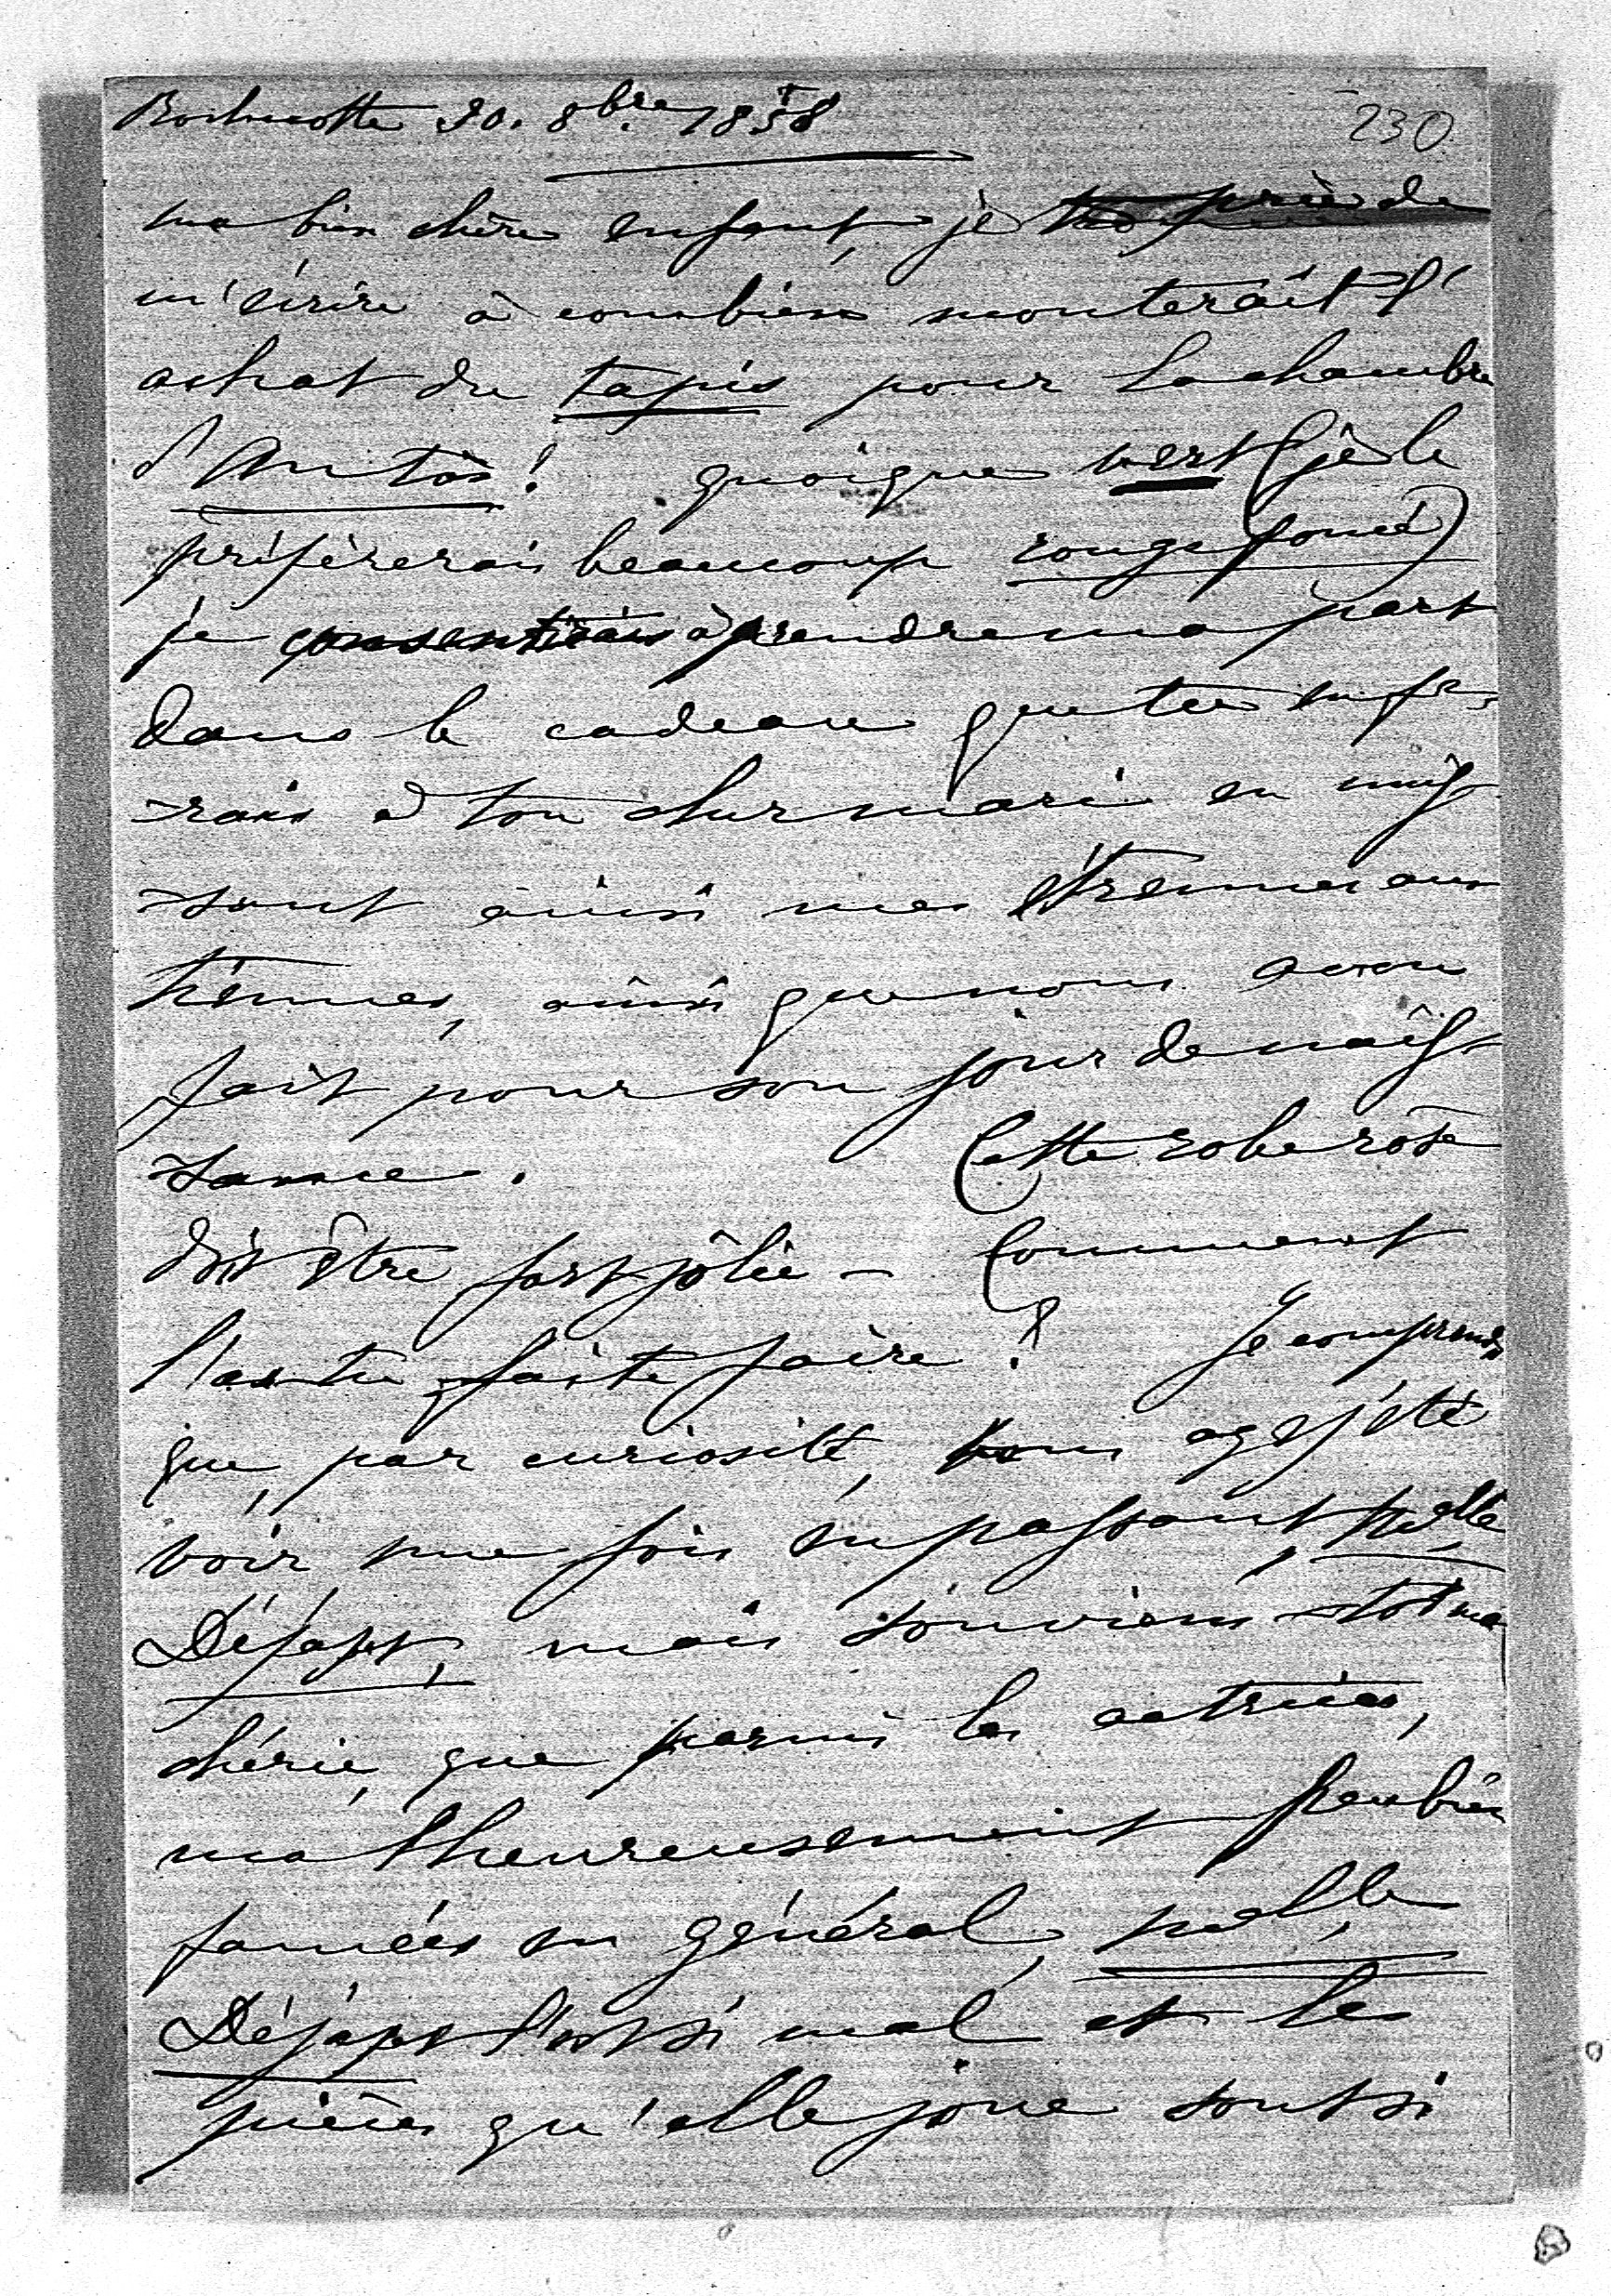 Rochecotte 20. 8bre 1858
230
ma bien chère enfant, je te prie de
m'écrire à combien monterait l'
achat du tapis pour la chambre
d'Anton! quoique vert (je le
préfèrerais beaucoup rouge foncé)
je consentirais à prendre ma part
dans le cadeau que tu en fe-
-rais à ton cher mari en unis-
-sant ainsi mes étrennes aux
tiennes, ainsi que nous avons
fait pour son jour de nais-
-sance. Cette robe rose
doit être fort jolie - Comment
l'as-tu faite faire? Je comprends
que, par curiosité, vous ayez été
voir une fois en passant, melle
Déjazet, mais souviens-toi ma
chérie, que parmi les actrices,
malheureusement peu bien
famées en général, melle
Déjazet l'est si mal et les
pièces qu'elle joue sont si